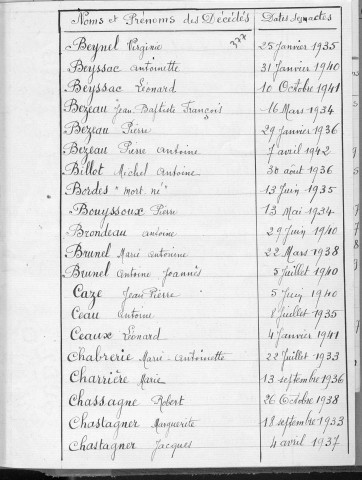 Noms et Prénoms des Décédés Dates des actes
Beynel Virginie 377 25 Janvier 1935
Beyssac Antoinette 31 Janvier 1940
Beyssac Léonard 10 Octobre 1941
Bezeau Jean Baptiste François 16 Mars 1934
Bezeau Pierre 29 Janvier 1936
Bezeau Pierre Antoine 7 avril 1942
Billot Michel Antoine 30 août 1936
Bordes "mort-né" 13 Juin 1935
Bouyssoux Pierre 13 Mai 1934
Brondeau Antoine 29 Juin 1940
Brunel Marie Antoinine 22 Mars 1938
Brunel Antoine Joannès 5 Juillet 1940
Caze Jean Pierre 5 Juin 1940
Ceau Antoine 8 Juillet 1935
Ceaux Léonard 4 Janvier 1941
Chabrerie Marie-Antoinette 22 Juillet 1933
Charrière Marie 13 septembre 1936
Chassagne Robert 26 Octobre 1938
Chastagner Marguerite 18 septembre 1933
Chastagner Jacques 4 avril 1937